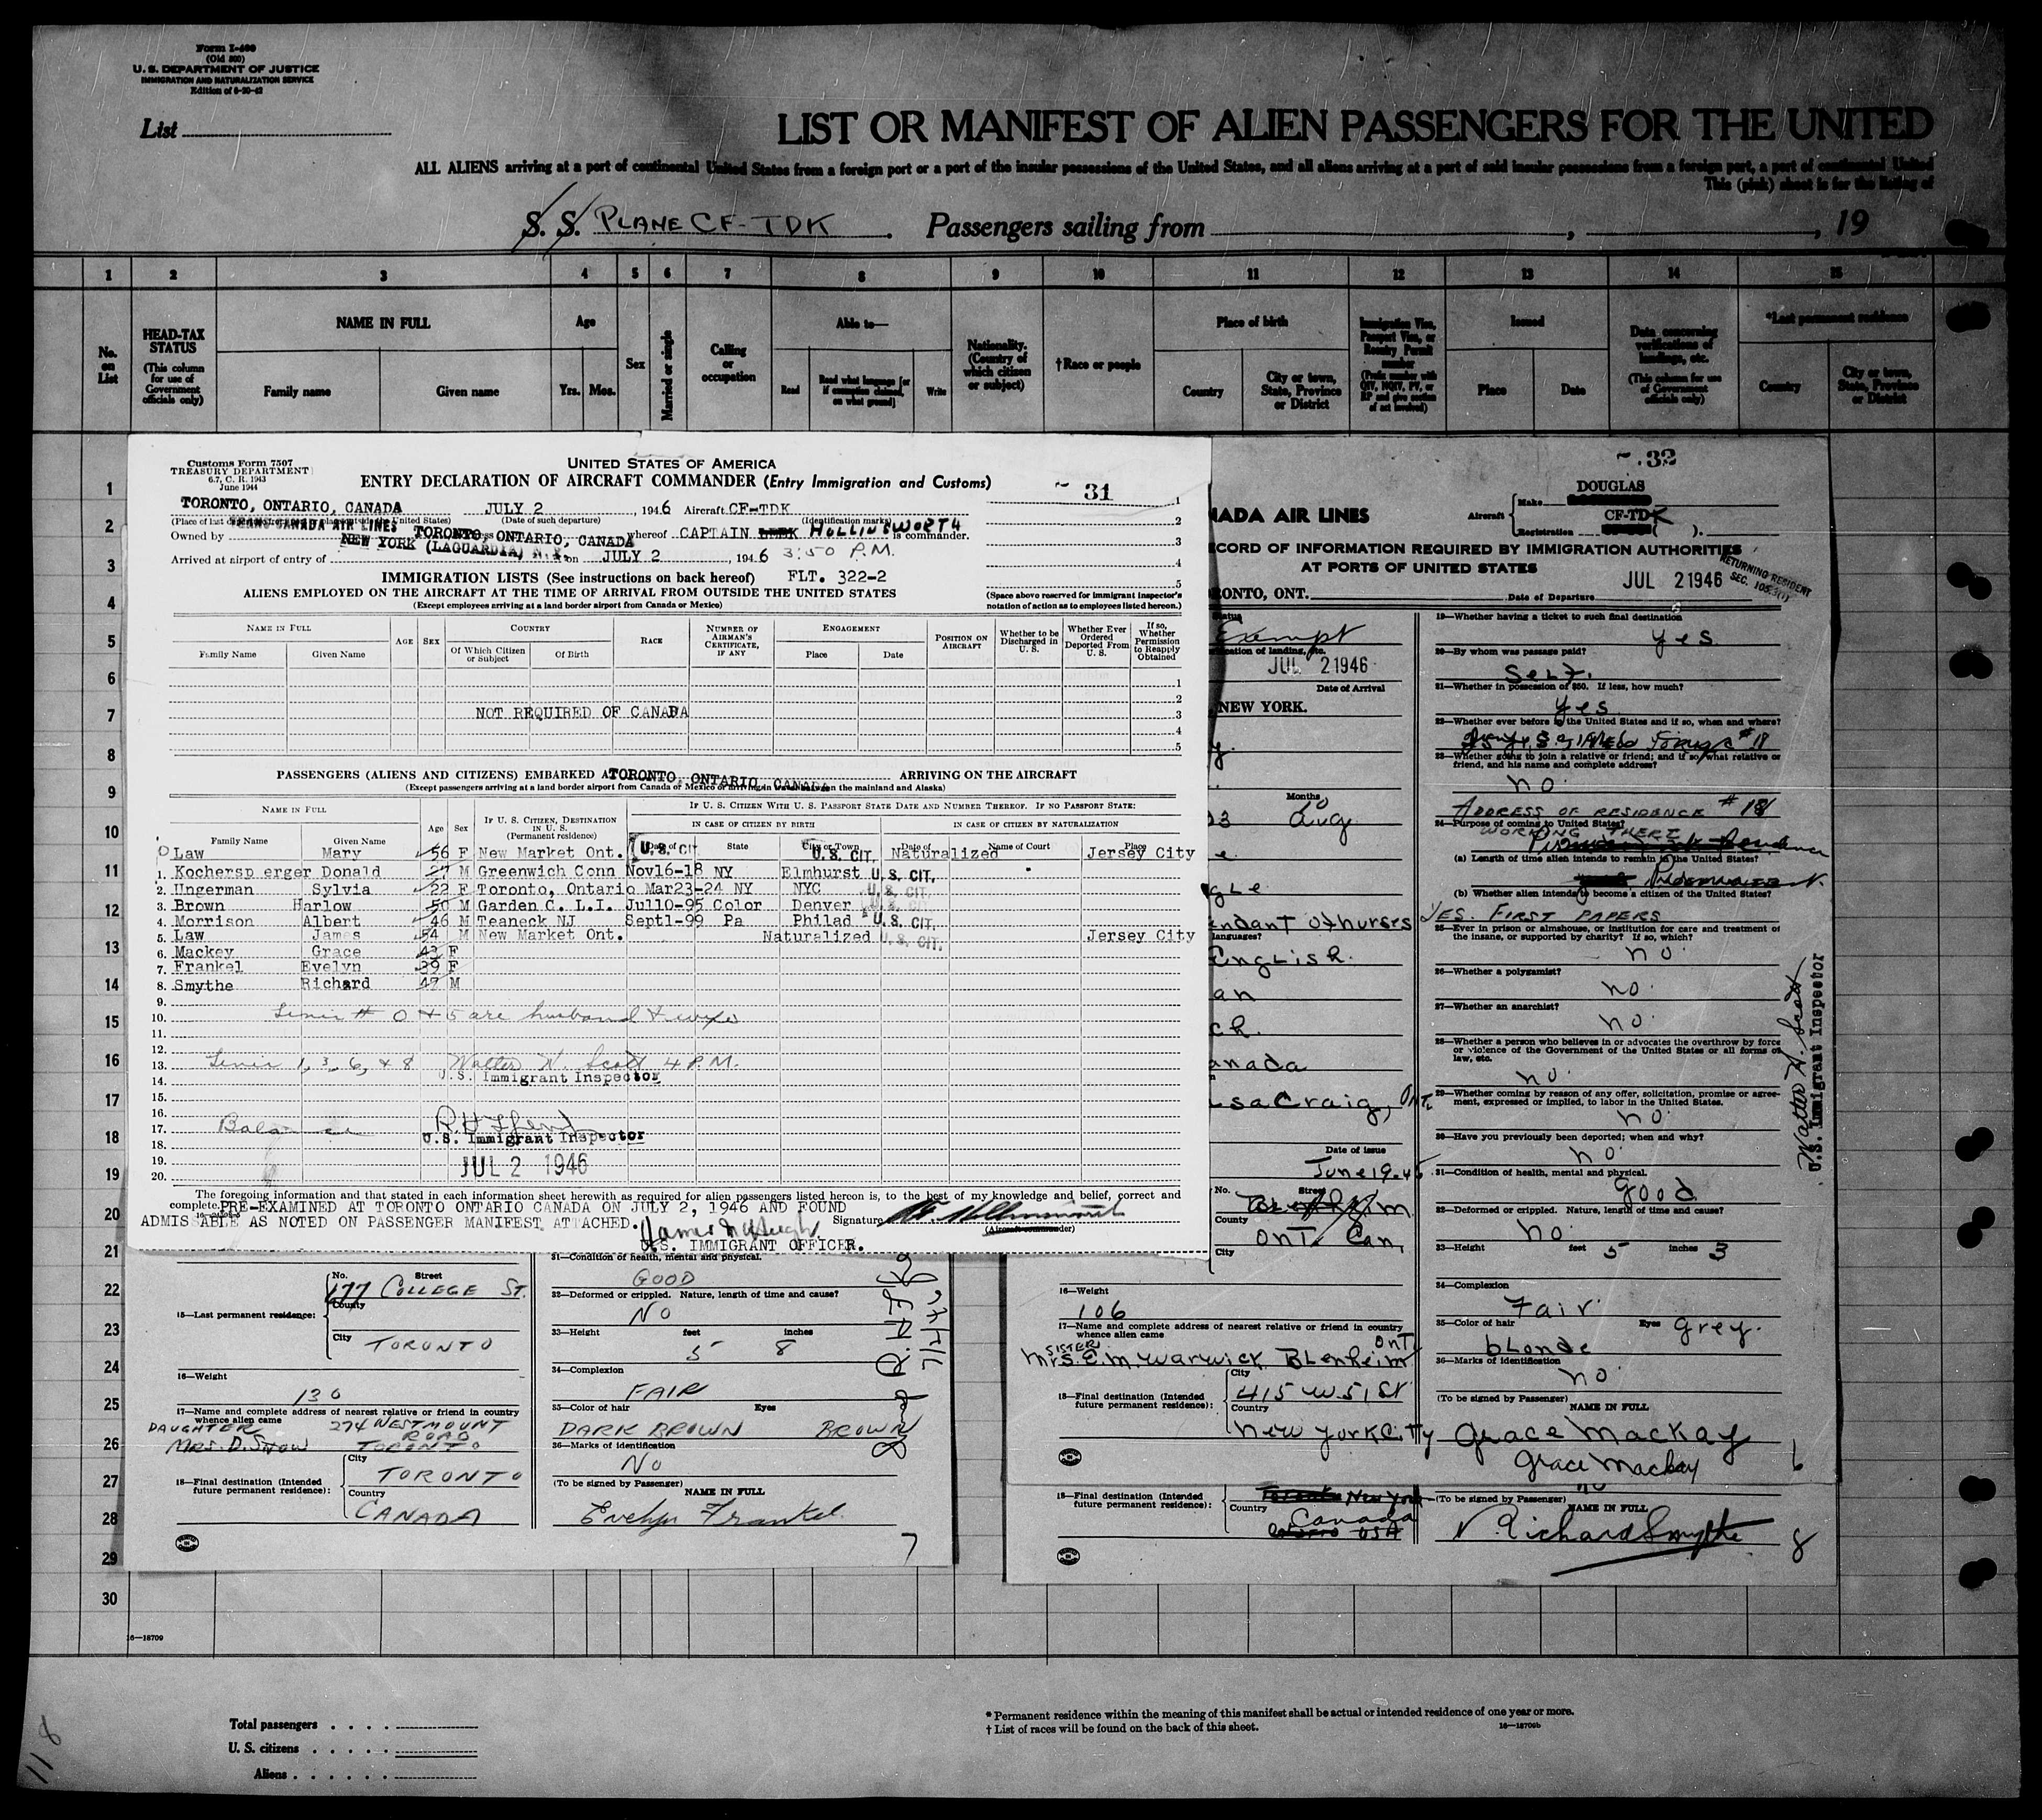 Form I-400
(Old 500)
U. S. DEPARTMENT OF JUSTICE
IMMIGRATION AND NATURALIZATION SERVICE
Edition of 6-20-42
List
LIST OR MANIFEST OF ALIEN PASSENGERS FOR THE UNITED
ALL ALIENS arriving at a port of continental United States from a foreign port or a port of the insular possessions of the United States, and all aliens arriving at a port of said insular possessions from a foreign port, a port of continental United
This (pink) sheet is for the listing of
S. S. PLANE CF-TDK . Passengers sailing from , , 19
1 2 3 4 5 6 7 8 9 10 11 12 13 14 15
No. on List
HEAD-TAX STATUS
(This column for use of Government officials only)
NAME IN FULL
Family name Given name
Age
Yrs. Mos.
Sex
Married or single
Calling or occupation
Able to—
Read Read what language [or if exemption claimed, on what ground] Write
Nationality. (Country of which citizen or subject)
†Race or people
Place of birth
Country City or town, State, Province or District
Immigration Visa, Passport Visa, or Reentry Permit number
(Prefix number with QIV, NQIV, PV, or RP and give section of act involved)
Issued
Place Date
Data concerning verifications of landings, etc.
(This column for use of Government officials only)
*Last permanent residence
Country City or town, State, Province or District
Customs Form 7507
TREASURY DEPARTMENT
6.7, C. R. 1943
June 1944
UNITED STATES OF AMERICA
ENTRY DECLARATION OF AIRCRAFT COMMANDER (Entry Immigration and Customs)
31
TORONTO, ONTARIO, CANADA JULY 2 , 1946 Aircraft CF-TDK
(Date of such departure) (Identification marks)
TRANS-CANADA AIR LINES
Owned by TORONTO, ONTARIO, CANADA whereof CAPTAIN HOLLINSWORTH is commander.
Arrived at airport of entry of NEW YORK (LAGUARDIA) N.Y. on JULY 2 , 1946 3:50 P.M.
IMMIGRATION LISTS (See instructions on back hereof) FLT. 322-2
ALIENS EMPLOYED ON THE AIRCRAFT AT THE TIME OF ARRIVAL FROM OUTSIDE THE UNITED STATES
(Except employees arriving at a land border airport from Canada or Mexico)
(Space above reserved for immigrant inspector's notation of action as to employees listed hereon.)
NAME IN FULL
Family Name Given Name
AGE SEX
COUNTRY
Of Which Citizen or Subject Of Birth
RACE
NUMBER OF AIRMAN'S CERTIFICATE, IF ANY
ENGAGEMENT
Place Date
POSITION ON AIRCRAFT
Whether to be Discharged in U. S.
Whether Ever Ordered Deported From U. S.
If so, Whether Permission to Reapply Obtained
NOT REQUIRED OF CANADA
PASSENGERS (ALIENS AND CITIZENS) EMBARKED AT TORONTO, ONTARIO, CANADA ARRIVING ON THE AIRCRAFT
NAME IN FULL
Family Name Given Name
Age Sex
IF U. S. CITIZEN, DESTINATION IN U. S.
(Permanent residence)
IF U. S. CITIZEN WITH U. S. PASSPORT STATE DATE AND NUMBER THEREOF. IF NO PASSPORT STATE:
IN CASE OF CITIZEN BY BIRTH IN CASE OF CITIZEN BY NATURALIZATION
Date of State City or Town Date of Name of Court Place
0 Law Mary 56 F New Market Ont. U.S. CIT U.S. CIT. Naturalized Jersey City
1. Kochersp erger Donald 27 M Greenwich Conn Nov16-18 NY Elmhurst U.S. CIT.
2. Ungerman Sylvia 22 F Toronto, Ontario Mar23-24 NY NYC U.S. CIT.
3. Brown Harlow 50 M Garden C. L.I. Jul10-95 Color Denver U.S. CIT.
4. Morrison Albert 46 M Teaneck NJ Sept1-99 Pa Philad U.S. CIT.
5. Law James 54 M New Market Ont. Naturalized U.S. CIT. Jersey City
6. Mackey Grace 43 F
7. Frankel Evelyn 39 F
8. Smythe Richard 47 M
9.
10. # 0 & 5 are husband & wife
11.
12.
13. 1, 3, 6, & 8 Walter W. Scott 4 P.M.
14. U.S. Immigrant Inspector
15.
16.
17. Balance
18. U.S. Immigrant Inspector
19. JUL 2 1946
20.
The foregoing information and that stated in each information sheet herewith as required for alien passengers listed hereon is, to the best of my knowledge and belief, correct and
complete. PRE-EXAMINED AT TORONTO ONTARIO CANADA ON JULY 2, 1946 AND FOUND
ADMISSABLE AS NOTED ON PASSENGER MANIFEST ATTACHED.
Signature
(Aircraft commander)
U.S. IMMIGRANT OFFICER.
32
NADA AIR LINES
Aircraft Make DOUGLAS
Registration CF-TDK
CORD OF INFORMATION REQUIRED BY IMMIGRATION AUTHORITIES
AT PORTS OF UNITED STATES
RETURNING RESIDENT
RONTO, ONT. JUL 2 1946
Date of Departure
Exempt
JUL 2 1946
Date of Arrival
NEW YORK.
Months
10
Aug
English.
anada
Craig, Ont.
Date of issue
June 19-45
No. Street
County Ont. Can,
City
16—Weight
106
17—Name and complete address of nearest relative or friend in country whence alien came
SISTER
Mrs. E.M. Warwick Blenheim Ont
18—Final destination (Intended future permanent residence):
City 415 W 51 St
Country
New York City
19—Whether having a ticket to such final destination
Yes
20—By whom was passage paid?
Self.
21—Whether in possession of $50. If less, how much?
Yes
22—Whether ever before in the United States and if so, when and where?
23—Whether going to join a relative or friend; and if so, what relative or friend, and his name and complete address?
no
ADDRESS OF RESIDENCE # 18
24—Purpose of coming to United States?
WORKING THERE
(a) Length of time alien intends to remain in the United States?
(b) Whether alien intends to become a citizen of the United States?
YES. FIRST PAPERS
25—Ever in prison or almshouse, or institution for care and treatment of the insane, or supported by charity? If so, which?
no
26—Whether a polygamist?
no
27—Whether an anarchist?
no
28—Whether a person who believes in or advocates the overthrow by force or violence of the Government of the United States or all forms of law, etc.
no
29—Whether coming by reason of any offer, solicitation, promise or agreement, expressed or implied, to labor in the United States.
no
30—Have you previously been deported; when and why?
no
31—Condition of health, mental and physical.
good
32—Deformed or crippled. Nature, length of time and cause?
no
33—Height feet 5 inches 3
34—Complexion
Fair
35—Color of hair Eyes
blonde grey.
36—Marks of identification
no
(To be signed by Passenger)
NAME IN FULL
Grace Mackay
Grace Mackay
6
Walter W. Scott
U.S. Immigrant Inspector
15—Last permanent residence:
No. Street
177 COLLEGE ST.
County
City TORONTO
16—Weight
130
17—Name and complete address of nearest relative or friend in country whence alien came
DAUGHTER 274 WESTMOUNT ROAD
MRS. D. SNOW TORONTO
18—Final destination (Intended future permanent residence):
City TORONTO
Country CANADA
31—Condition of health, mental and physical.
GOOD
32—Deformed or crippled. Nature, length of time and cause?
NO
33—Height feet inches
5 8
34—Complexion
FAIR
35—Color of hair Eyes
DARK BROWN BROWN
36—Marks of identification
NO
(To be signed by Passenger)
NAME IN FULL
Evelyn Frankel
7
18—Final destination (Intended future permanent residence):
New York
Country Canada
USA
(To be signed by Passenger)
NAME IN FULL
Richard Smythe
8
1
2
3
4
5
6
7
8
9
10
11
12
13
14
15
16
17
18
19
20
21
22
23
24
25
26
27
28
29
30
16—18709
Total passengers
U. S. citizens
Aliens
* Permanent residence within the meaning of this manifest shall be actual or intended residence of one year or more.
† List of races will be found on the back of this sheet.
16—18709b
118